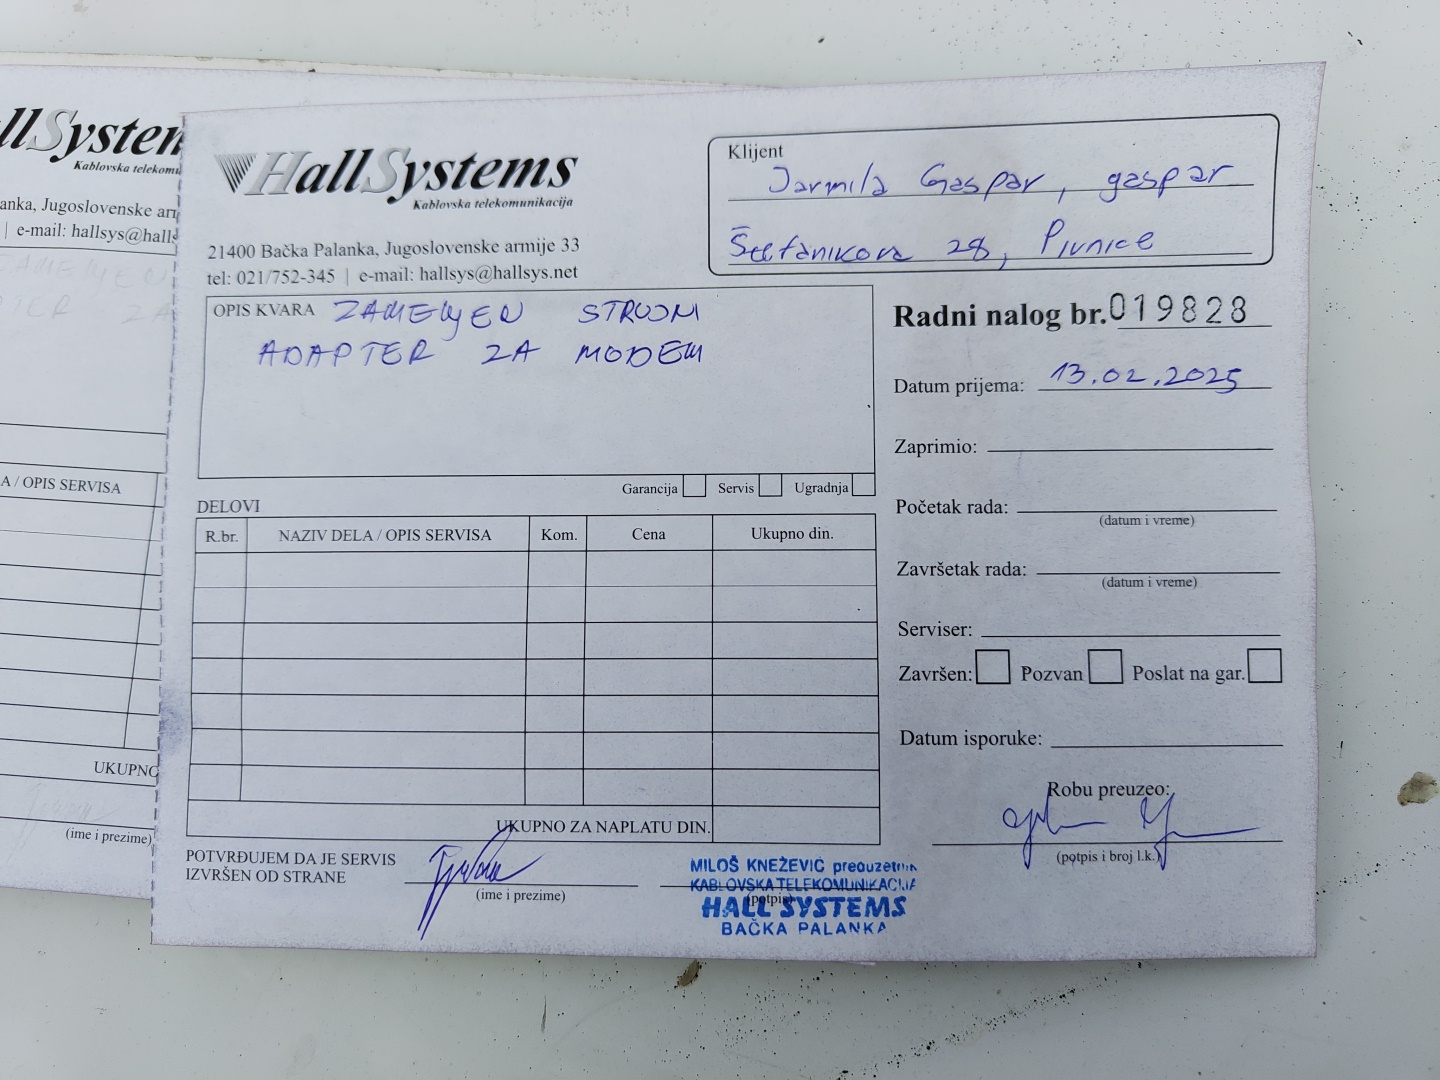 llSystem
Kablovska telekomu
anka, Jugoslovenske arm
| e-mail: hallsys@halls
A / OPIS SERVISA
UKUPNO
(ime i prezime)
HallSystems
Kablovska telekomunikacija
21400 Bačka Palanka, Jugoslovenske armije 33
tel: 021/752-345 | e-mail: hallsys@hallsys.net
Klijent
Jarmila Gaspar, gaspar
Štefanikova 28, Pivnice
OPIS KVARA ZAMENJEN STRUJNI
ADAPTER ZA MODEM
Garancija Servis Ugradnja
DELOVI
R.br. NAZIV DELA / OPIS SERVISA Kom. Cena Ukupno din.
UKUPNO ZA NAPLATU DIN.
POTVRĐUJEM DA JE SERVIS
IZVRŠEN OD STRANE
(ime i prezime)
(potpis)
MILOŠ KNEŽEVIĆ preduzetnik
KABLOVSKA TELEKOMUNIKACIJA
HALL SYSTEMS
BAČKA PALANKA
Radni nalog br. 019828
Datum prijema: 13.02.2025
Zaprimio:
Početak rada:
(datum i vreme)
Završetak rada:
(datum i vreme)
Serviser:
Završen: Pozvan Poslat na gar.
Datum isporuke:
Robu preuzeo:
(potpis i broj l.k.)